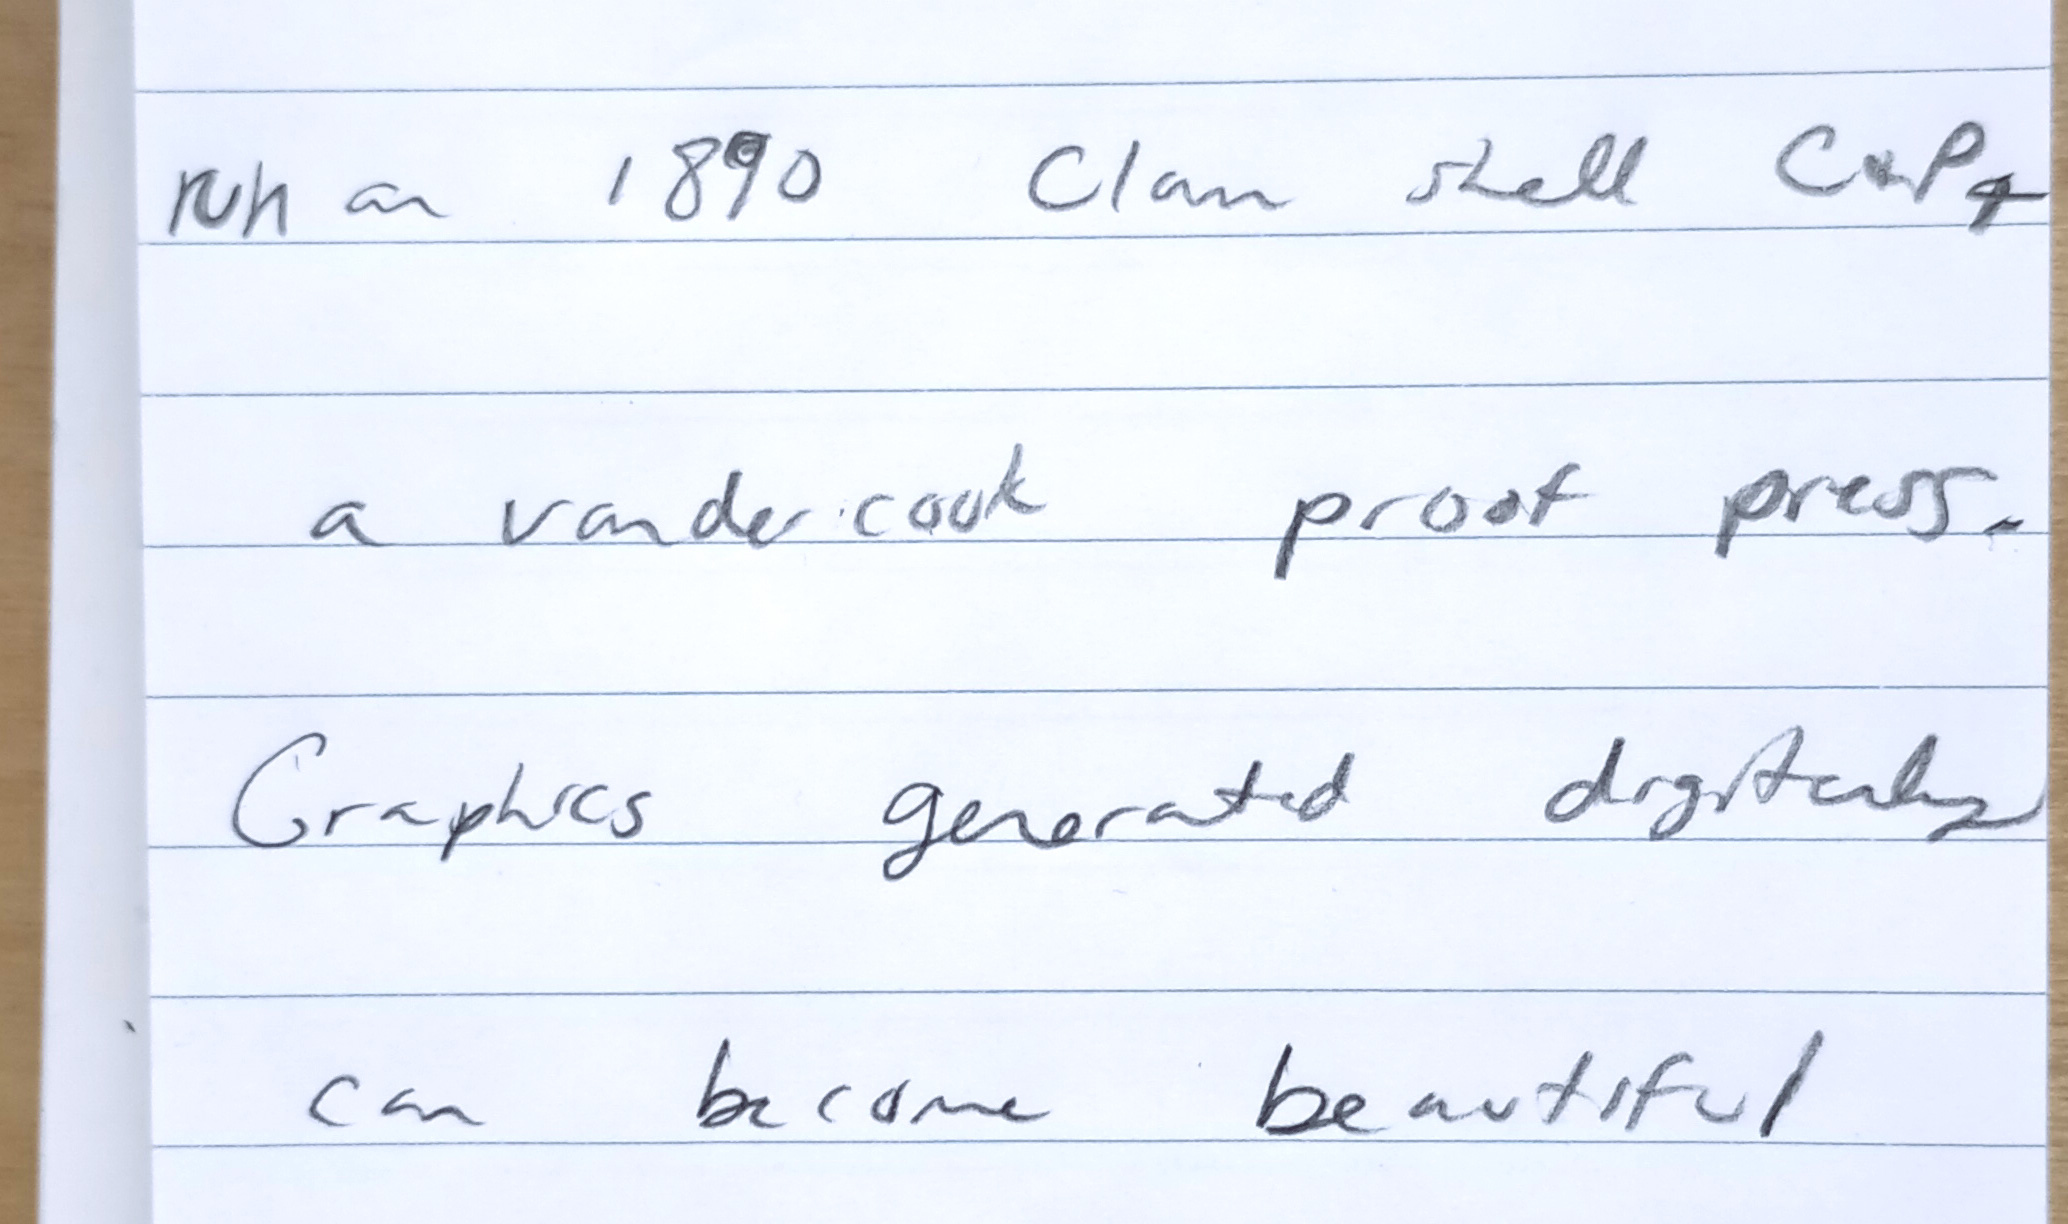 run an 1890 Clam shell C+P +
a vandercook proof press.
Graphics generated digitally
can become beautiful